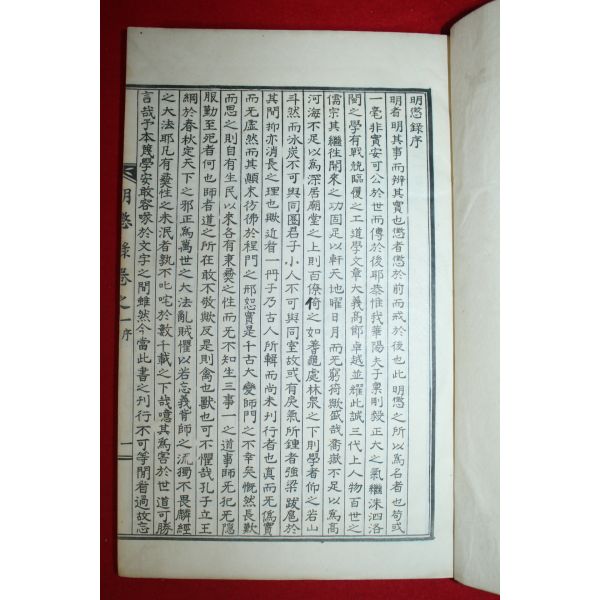 明懲錄序
明者明其事而辨其實也懲者懲於前而戒於後也此明懲之所以爲名者也苟或
一毫非實安可公於世而傳於後耶恭惟我華陽夫子稟剛毅正大之氣繼洙泗洛
閩之學有戰兢臨履之工道學文章大義高節卓越並耀此誠三代上人物百世之
儒宗其繼徃開來之功固足以軒天地曜日月而无窮猗歟盛哉喬嶽不足以爲高
河海不足以爲深居廟堂之上則百僚倚之如蓍龜處林泉之下則學者仰之若山
斗然而氷炭不可與同圈君子小人不可與同室故或有戾氣所鍾者強梁跋扈於
其間抑亦消長之理也歟近者一冊子乃古人所輯而尙未刊行者也真而无僞實
而无虛然而其顚末彷彿於程門之邢恕實是千古大變師門之不幸矣慨然長歎
而思之則自有生民以來各有秉彜之性而无不知生三事一之道事師无犯无隱
服勤至死者何也師者道之所在敢不敬歟反是則禽也獸也可不懼哉孔子立王
綱於春秋定天下之邪正爲萬世之大法亂賊懼以若忘義背師之流獨不畏麟經
之大法耶凡有彜性之未泯者孰不叱咤於數千載之下哉噫其爲害於世道可勝
言哉予本蔑學安敢容喙於文字之間雖然今當此書之刊行不可等閒看過故忘
明懲錄卷之一 序 一